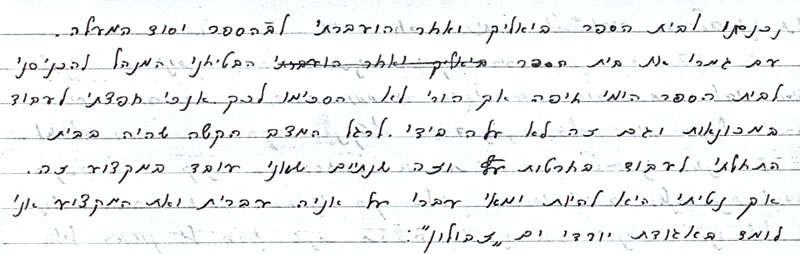 נכנסנו לבית הספר ביאליק ואחר הועברתי לביהספר יסוד המעלה.
עם גמרי את בית הספר ביאליק ואחר הועברתי הבטיחני המנהל להכניסני
לבית הספר הימי חיפה אך הורי לא הסכימו לכך. אנכי חפצתי לעבוד
במכונאות וגם זה לא עלה בידי. לרגל המצב הקשה שהיה בבית
התחלתי לעבוד בחרטות וזה שנתיים שאני עובד במקצוע זה.
אך נטיתי היא להיות ימאי עברי על אניה עברית ואת המקצוע אני
לומד באגודת יורדי ים „זבולון":